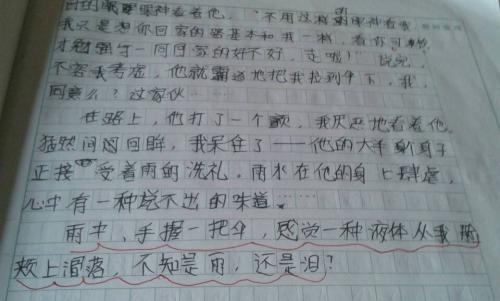 眼神看着他，“不用这样的眼神看我
我只是想你回家的路基本和我一样，看你可
才勉强与一同回家的好不好，走啦！”说完，
不容我考虑，他就霸道地把我拉到伞下，我，
同意么？这家伙……
在路上，他打了一个颤，我厌恶地看着他，
猛然间回眸，我呆住了——他的大半身子
正接受着雨的洗礼，雨水在他的身上肆虐，
心中有一种说不出的味道……
雨中，手握一把伞，感觉一种液体从我
颊上滑落，不知是雨，还是泪？